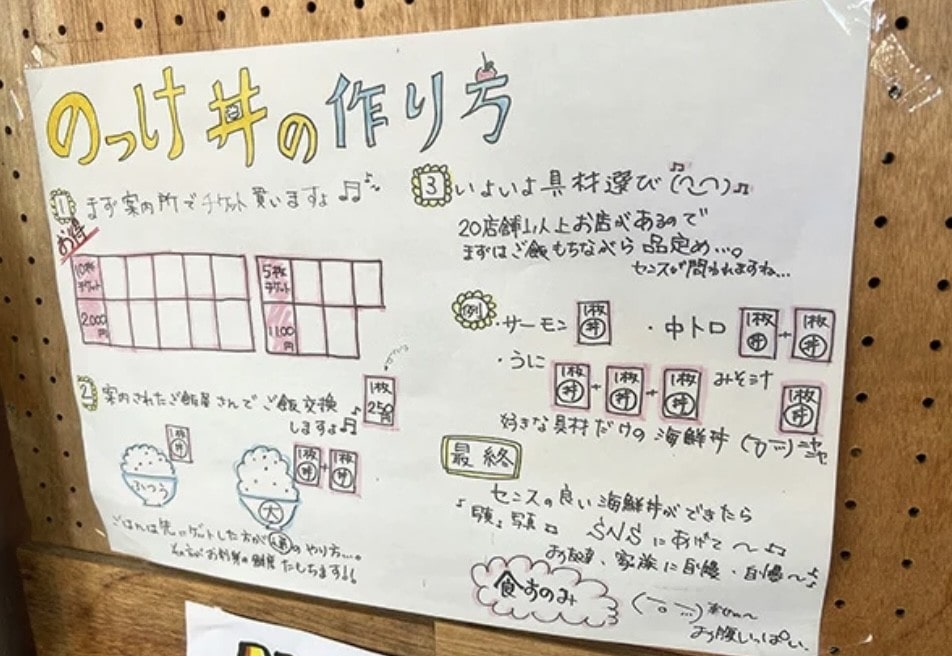 のっけ丼の作り方
1 まず案内所でチケット買いますよ♫♪
お得
10枚
チケット
2000
円
5枚
チケット
1100
円
1枚
250円
2 案内されたご飯屋さんでご飯交換
しますよ♫
1枚
丼
ふつう
1枚
丼
+
1枚
丼
大
ごはんは先にゲットした方が
のやり方…。
その方がお刺身の鮮度たもちます!!
3 いよいよ具材選び
20店舗以上お店があるので
まずはご飯もちながら品定め…。
センスが問われますね…
例
・サーモン 1枚 丼
・中トロ 1枚 丼 + 1枚 丼
・うに 1枚 丼 + 1枚 丼 + 1枚 丼
みそ汁 1枚 丼
好きな具材だけの海鮮丼 ニヤニヤ
最終
センスの良い海鮮丼ができたら
写真 SNSにあげて〜♫
お友達、家族に自慢・自慢〜
食すのみ
お腹いっぱい。